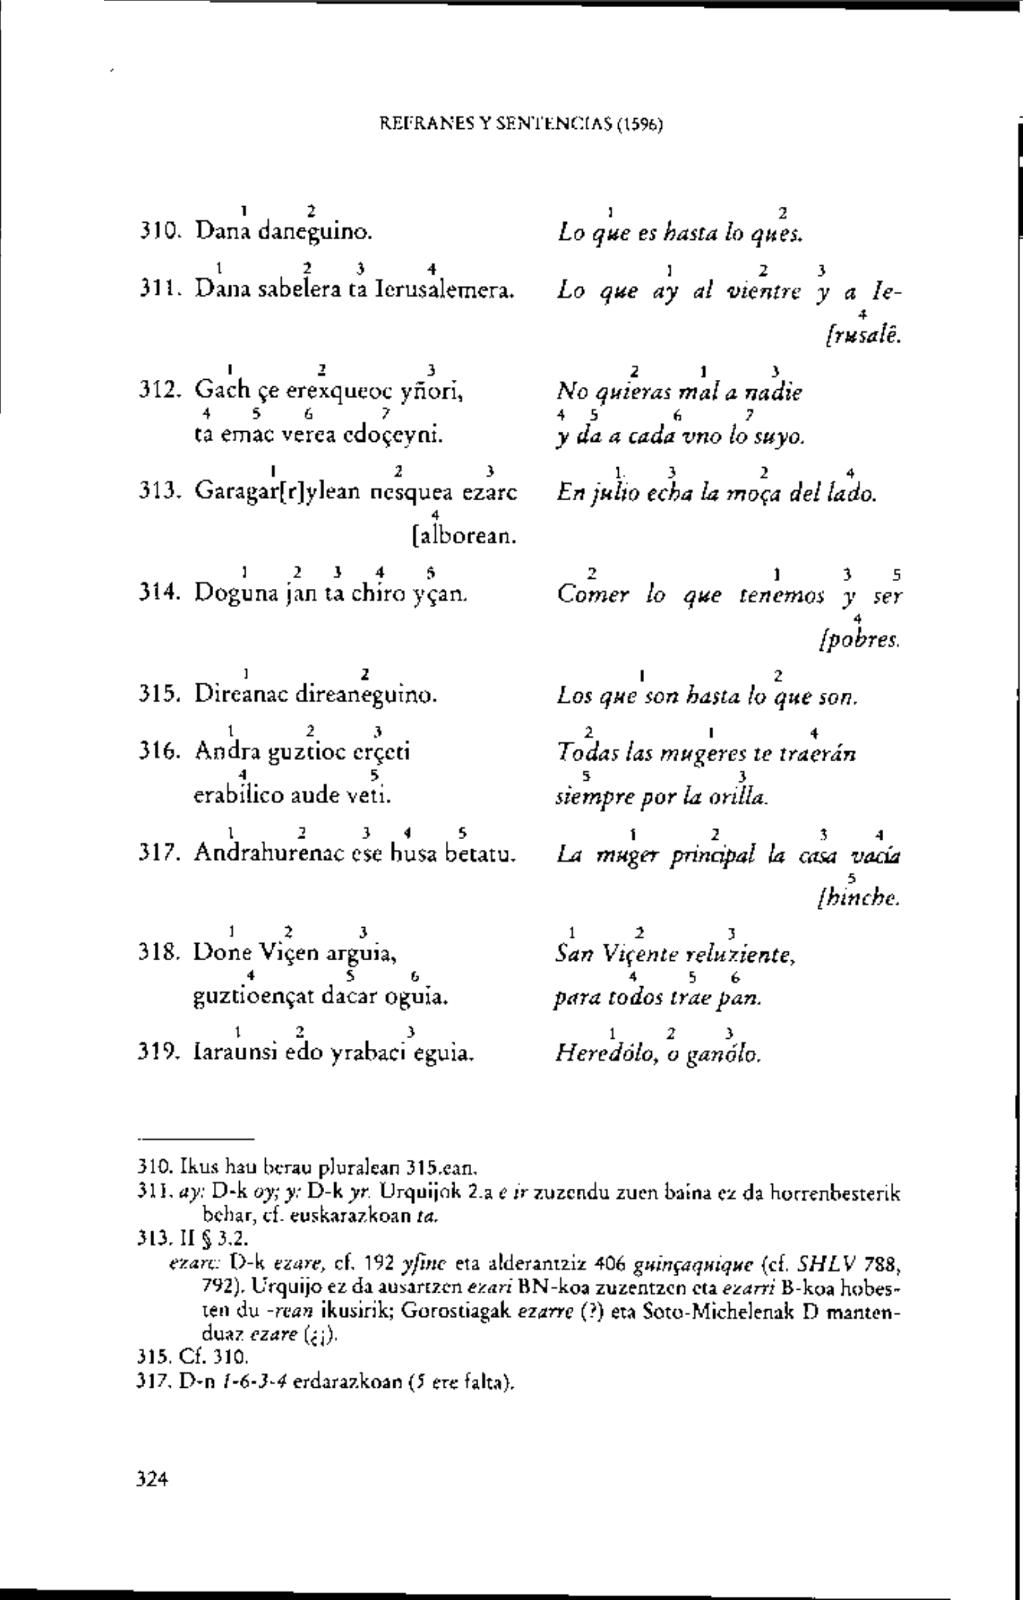 REFRANES Y SENTENCIAS (1596)
1 2
310. Dana daneguino.
1 2
Lo que es hasta lo ques.
1 2 3 4
311. Dana sabelera ta Ierusalemera.
1 2 3
Lo que ay al vientre y a Ie-
4
[rusalẽ.
1 2 3
312. Gach çe erexqueoc yñori,
4 5 6 7
ta emac verea edoçeyni.
2 1 3
No quieras mal a nadie
4 5 6 7
y da a cada vno lo suyo.
1 2 3
313. Garagar[r]ylean nesquea ezarc
4
[alborean.
1 3 2 4
En julio echa la moça del lado.
1 2 3 4 5
314. Doguna jan ta chiro yçan.
2 1 3 5
Comer lo que tenemos y ser
4
[pobres.
1 2
315. Direanac direaneguino.
1 2
Los que son hasta lo que son.
1 2 3
316. Andra guztioc erçeti
4 5
erabilico aude veti.
2 1 4
Todas las mugeres te traerán
5 3
siempre por la orilla.
1 2 3 4 5
317. Andrahurenac ese husa betatu.
1 2 3 4
La muger principal la casa vacía
5
[hinche.
1 2 3
318. Done Viçen arguia,
4 5 6
guztioençat dacar oguia.
1 2 3
San Viçente reluziente,
4 5 6
para todos trae pan.
1 2 3
319. Iaraunsi edo yrabaci eguia.
1 2 3
Heredólo, o ganólo.
310. Ikus hau berau pluralean 315.ean.
311. ay: D-k oy; y: D-k yr. Urquijok 2.a e ir zuzendu zuen baina ez da horrenbesterik
behar, cf. euskarazkoan ta.
313. II § 3.2.
ezarc: D-k ezare, cf. 192 yfinc eta alderantziz 406 guinçaquique (cf. SHLV 788,
792). Urquijo ez da ausartzen ezari BN-koa zuzentzen eta ezarri B-koa hobes-
ten du -rean ikusirik; Gorostiagak ezarre (?) eta Soto-Michelenak D manten-
duaz ezare (¿¡).
315. Cf. 310.
317. D-n 1-6-3-4 erdarazkoan (5 ere falta).
324